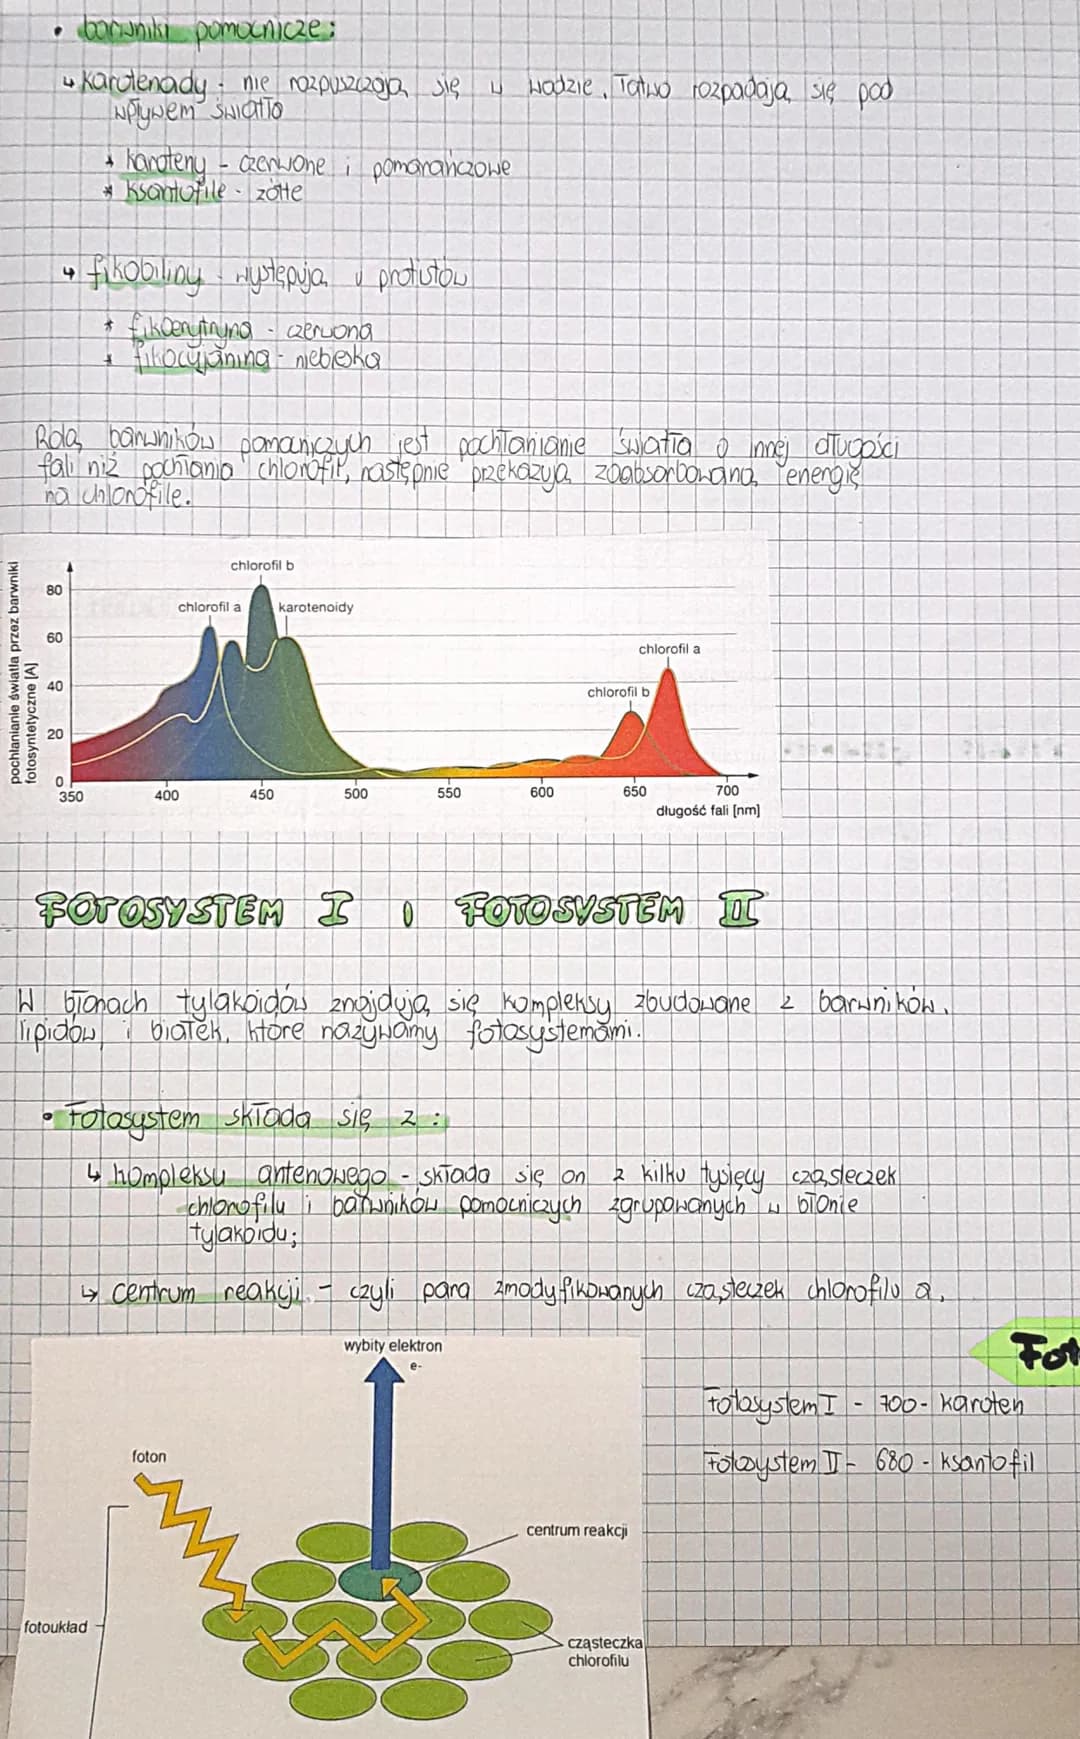 • barwniki pomocnicze:
↳ karotenady - nie rozpuszczają się w wodzie, łatwo rozpadają się pod
wpływem światło
* karoteny - czerwone i pomarańczowe
* ksantofile - żółte
↳ fikobiliny - występują u protistów
* fikoerytryna - czerwona
* fikocyjanina - niebieska
Rolą barwników pomocniczych jest pochłanianie światła o innej długości
fali niż pochłania chlorofil, następnie przekazują zaabsorbowaną energię
na chlorofile.
pochłanianie światła przez barwniki
fotosyntetyczne [A]
80
60
40
20
0
chlorofil b
chlorofil a
karotenoidy
chlorofil a
chlorofil b
350 400 450 500 550 600 650 700
długość fali [nm]
FOTOSYSTEM I i FOTOSYSTEM II
W błonach tylakoidów znajdują się kompleksy zbudowane z barwników,
lipidów i białek, które nazywamy fotosystemami.
• Fotosystem składa się z:
↳ kompleksu antenowego - składa się on z kilku tysięcy cząsteczek
chlorofilu i barwników pomocniczych zgrupowanych w błonie
tylakoidu;
↳ centrum reakcji - czyli para zmodyfikowanych cząsteczek chlorofilu a.
Fot
Fotosystem I - 700 - karoten
Fotosystem II - 680 - ksantofil
wybity elektron
e-
foton
centrum reakcji
fotoukład
cząsteczka
chlorofilu